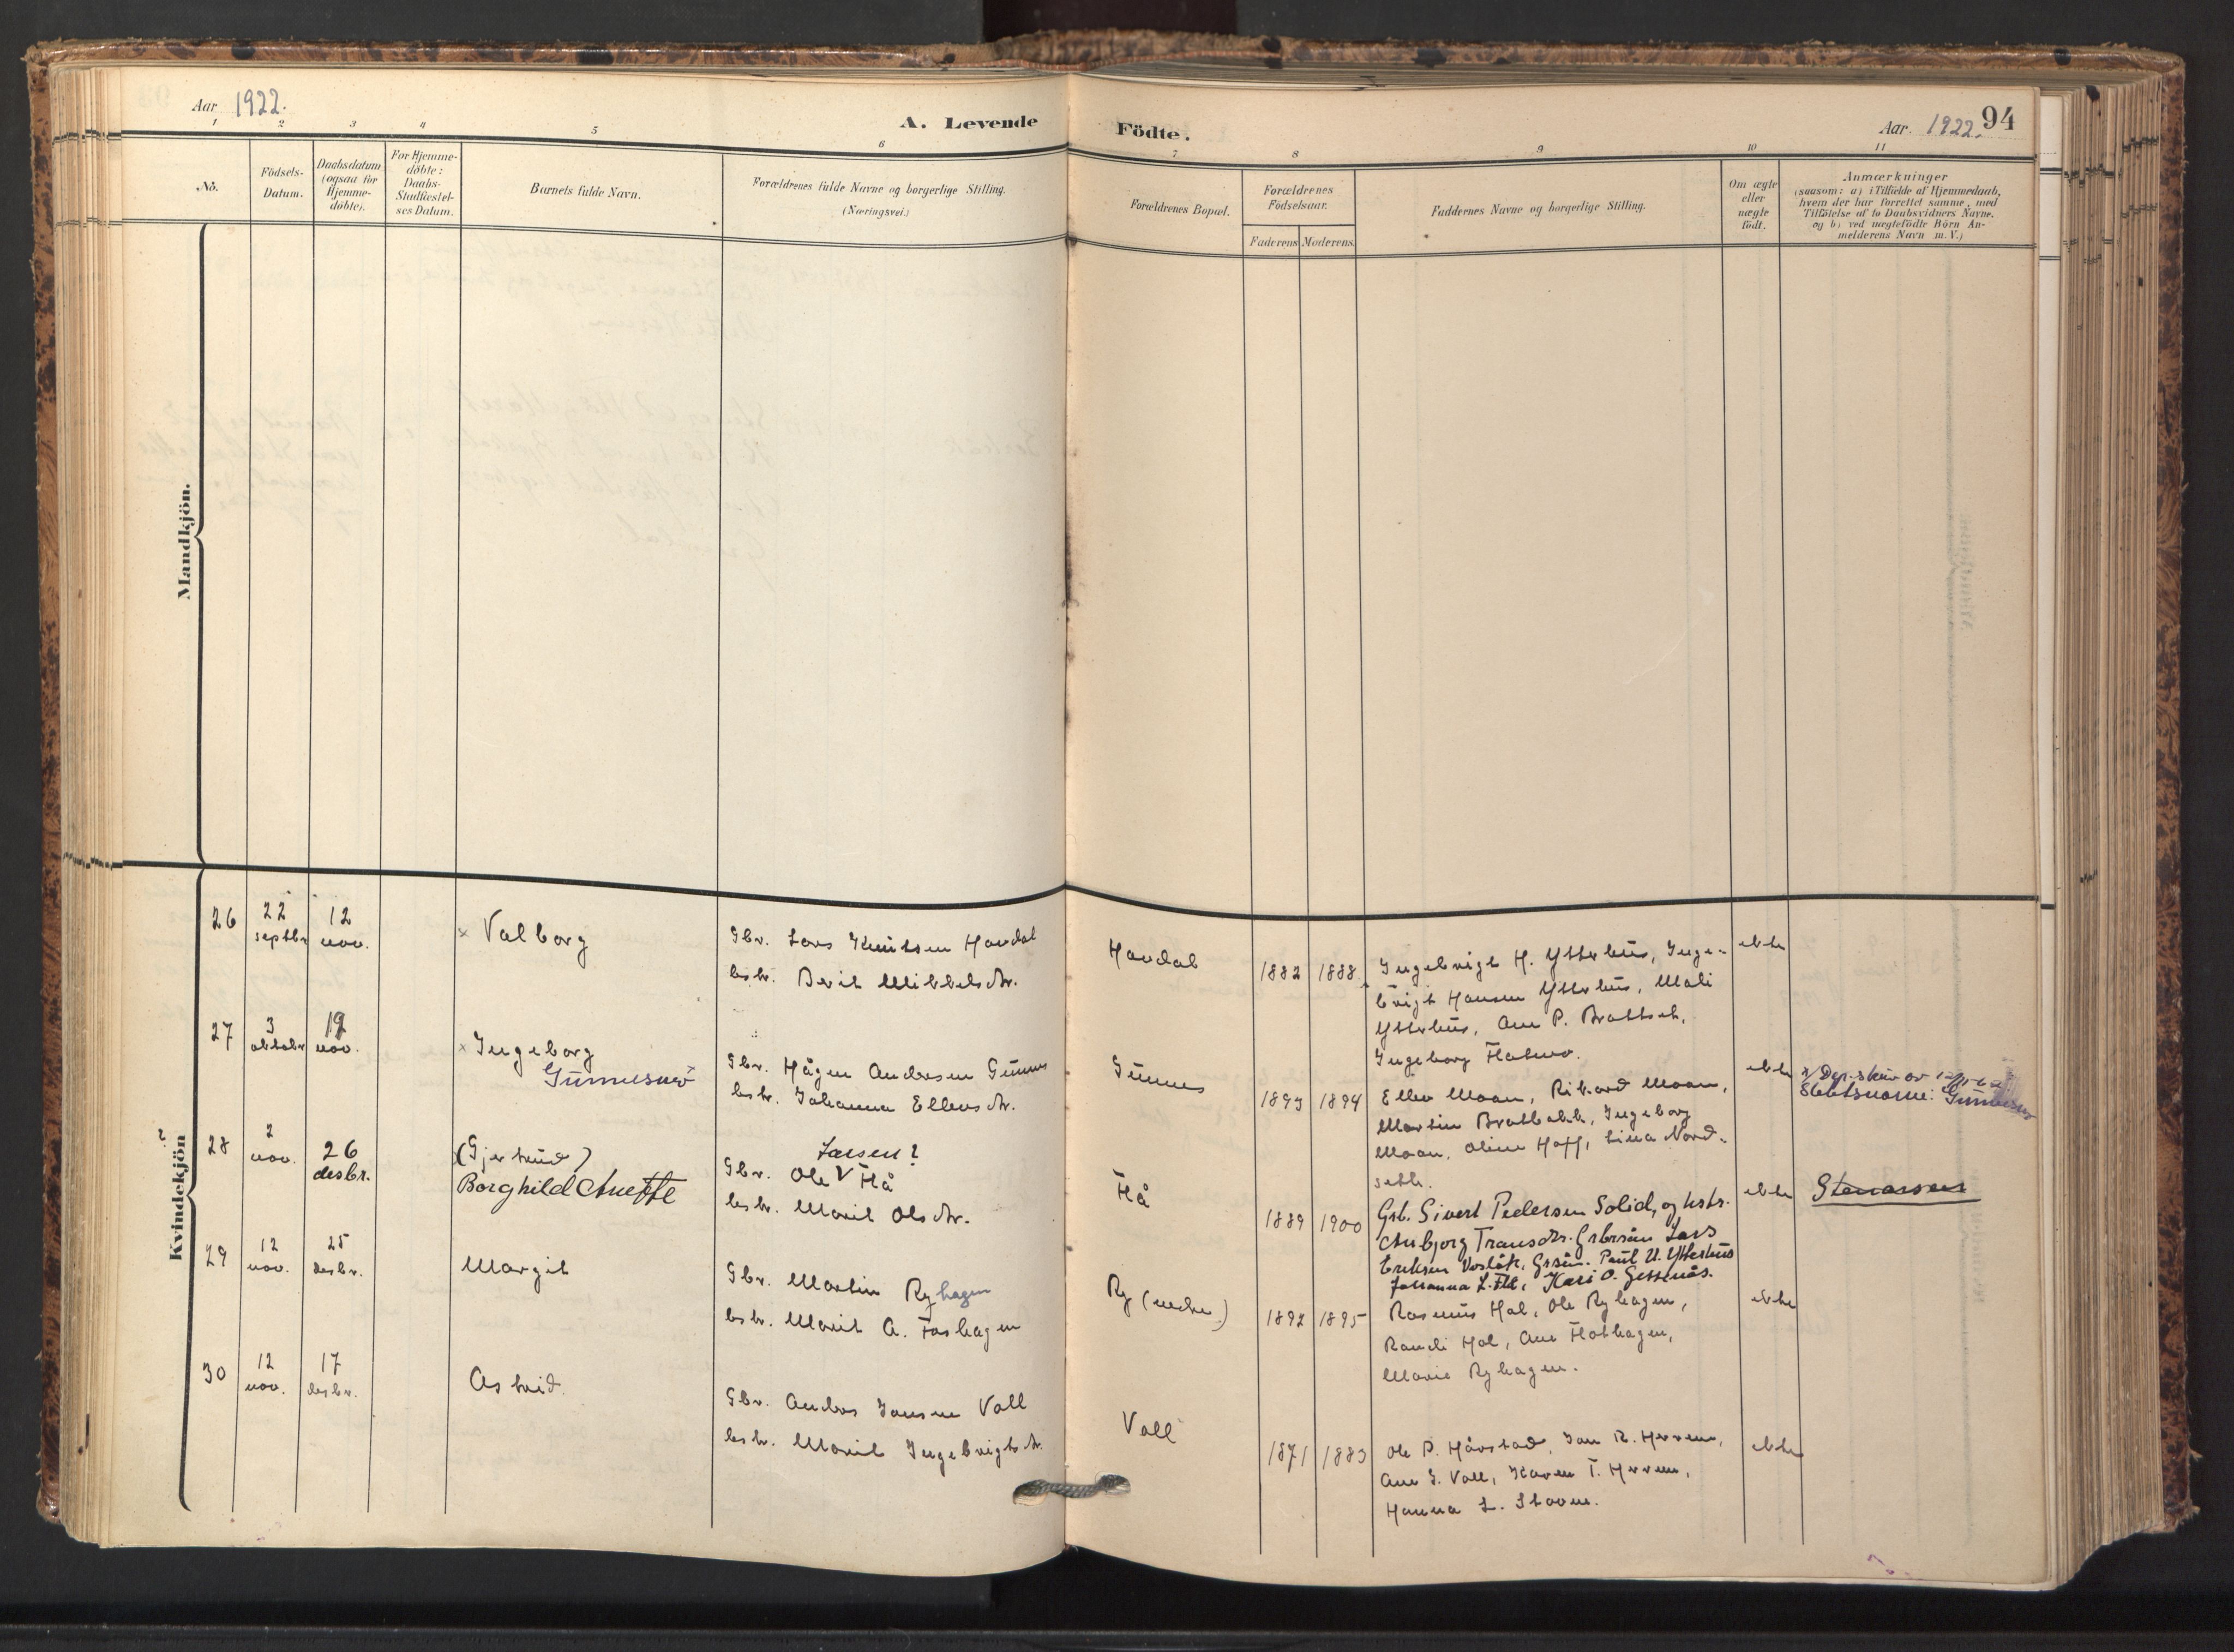 Aar 1922.
A. Levende
Födte.
Aar. 1922. 94
1 2 3 4 5 6 7 8 9 10 11
No.
Födsels-
Datum.
Daabsdatum
(ogsaa for
Hjemme-
döbte).
For Hjemme-
döbte:
Daabs-
Stadfæstel-
ses Datum.
Barnets fulde Navn.
Forældrenes fulde Navne og borgerlige Stilling.
(Næringsvei.)
Forældrenes Bopæl.
Forældrenes
Födselsaar.
Faderens Moderens
Faddernes Navne og borgerlige Stilling.
Om ægte
eller
uægte
födt.
Anmærkninger
(saasom: a) i Tilfælde af Hjemmedaab,
hvem der har forrettet samme, med
Tilföielse af to Daabsvidners Navne.
og b) ved uægtefödte Börn An-
melderens Navn m. V.)
Mandkjön.
Kvindekjön
26
22
septbr
12
nov.
× Valborg
Gbr. Lars Knutsen Havdal
hstr. Berit Mikkelsdtr.
Havdal
1882 1888
Ingebrigt H. Ytterhus, Inge-
brigt Hansen Ytterhus, Mali
Ytterhus, Ane P. Brattset,
Ingeborg Flatmo.
ekte
27
3
oktober
19
nov.
× Ingeborg
Gunnesmo
Gbr. Hågen Andersen Gunnes
hstr. Johanna Ellevsdtr.
Gunnes
1893 1894
Ellev Moan, Rikard Moan,
Martin Bratbakk, Ingeborg
Moan, Oline Hoff, Lina Nord-
seth.
ekte
Slektsnavne: Gunnesmo
?
28
2
nov.
26
desbr.
(Gjertrud)
Borghild Anette
Larsen?
Gbr. Ole V Flå
hstr. Marit Olsdtr.
Flå
1889 1900
Grb. Sivert Pedersen Solid, og hstr.
Anbjorg Transdtr. Grbrsøn Lars
Eriksen Voslåk, Grsøn. Paul U. Ytterhus
Johanna L. Flå, Kari O. Gissnås.
ekte
Stenarsen
29
12
nov.
25
desbr.
Margit
Gbr. Martin Ryhagen
hstr. Marit A. Foshagen
Ry (nedre)
1892 1895
Rasmus Hol, Ole Ryhagen,
Randi Hol, Ane Flothagen,
Marie Ryhagen.
ekte
30
12
nov.
17
desbr.
Astrid.
Gbr. Anders Jonsen Voll
hstr. Marit Ingebrigtsdtr.
Voll
1871 1883
Ole P. Håvstad, Jon R. Herrem,
Ane J. Voll, Karen T. Herrem,
Hanna L. Stavne.
ekte